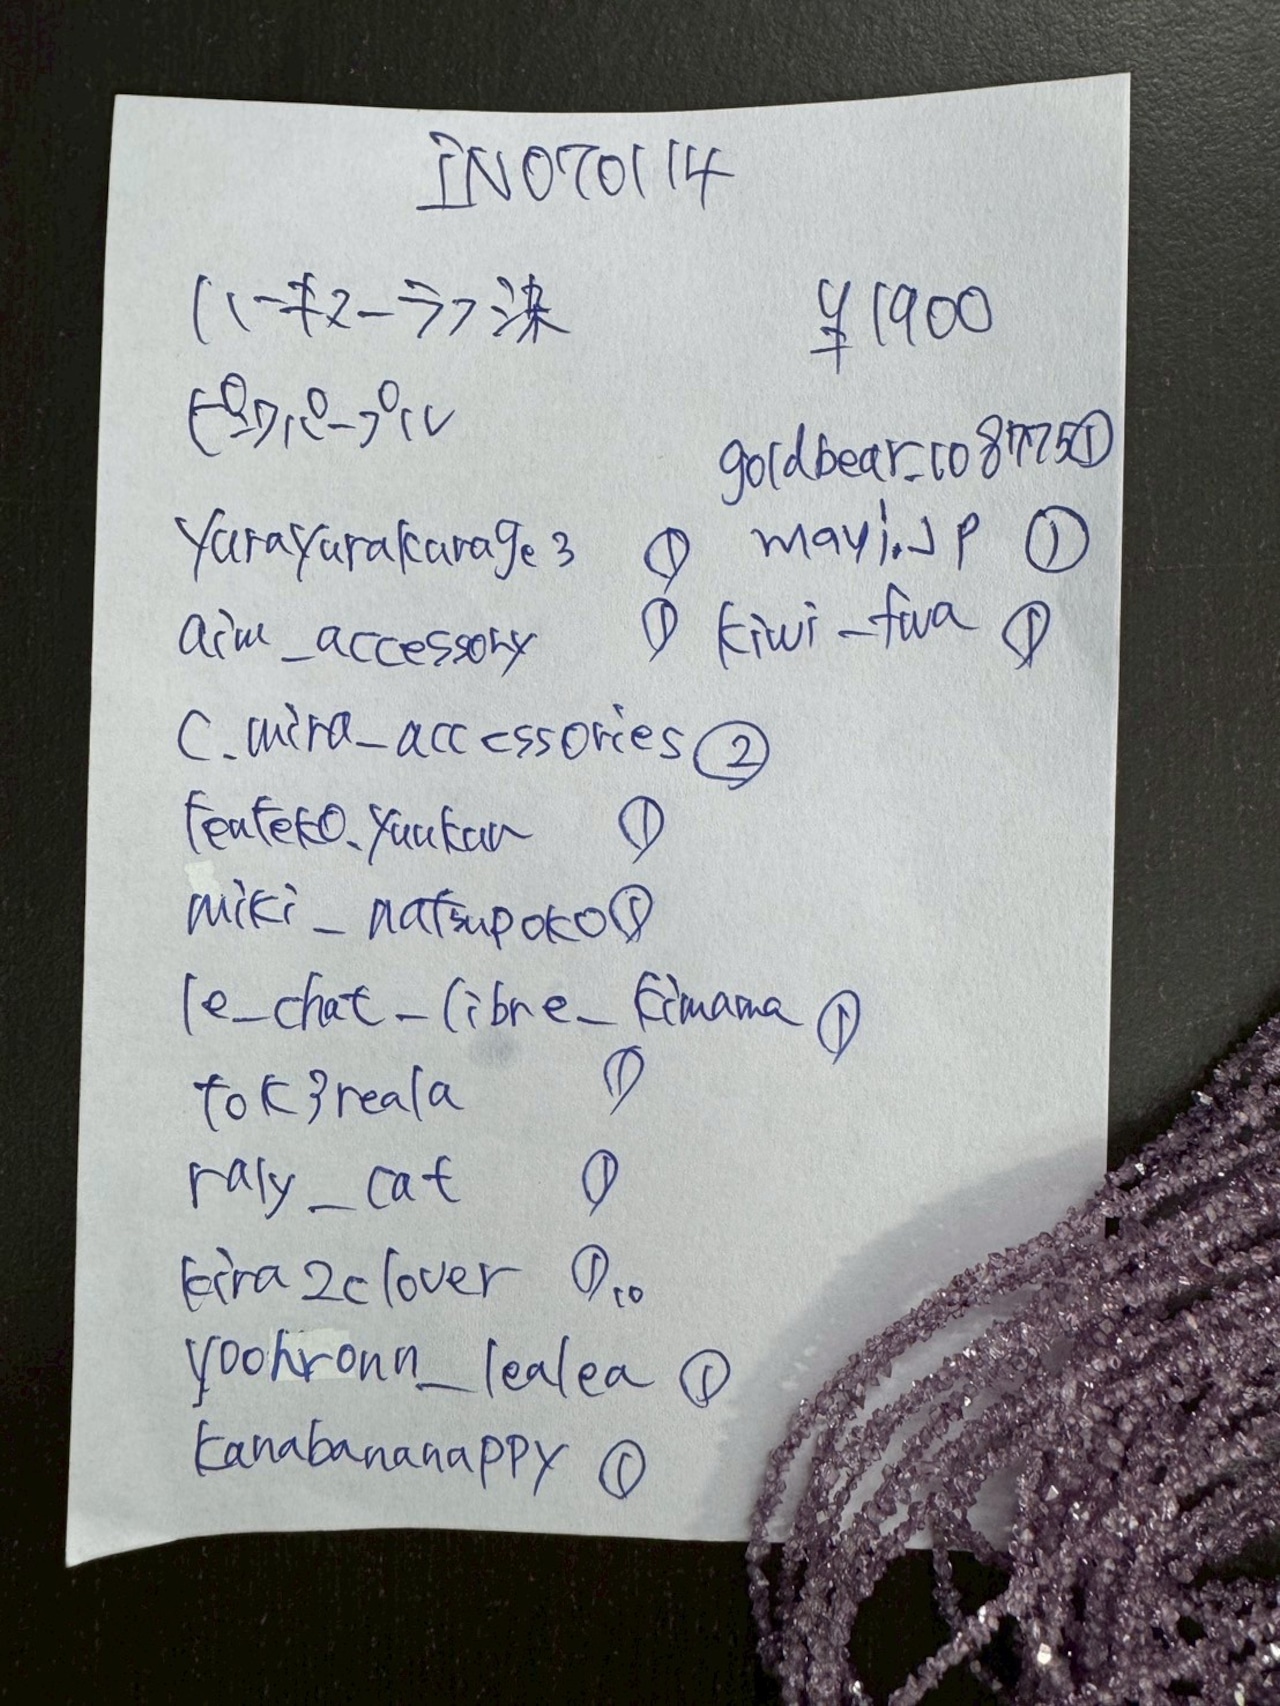 IN070114
ハーキマーラフ染 ¥1900
ピンクパープル
goldbear_108775①
yurayurakarage3 ①
mayj.JP ①
aim_accessory ①
kiwi_fwa ①
c.mira_accessories②
teateko.yuukan ①
miki_natsupoko①
le_chat_libre_kimama ①
tok3reala ①
raly_cat ①
kira2clover ①10
yoohronn_lealea ①
kanabananappy ①